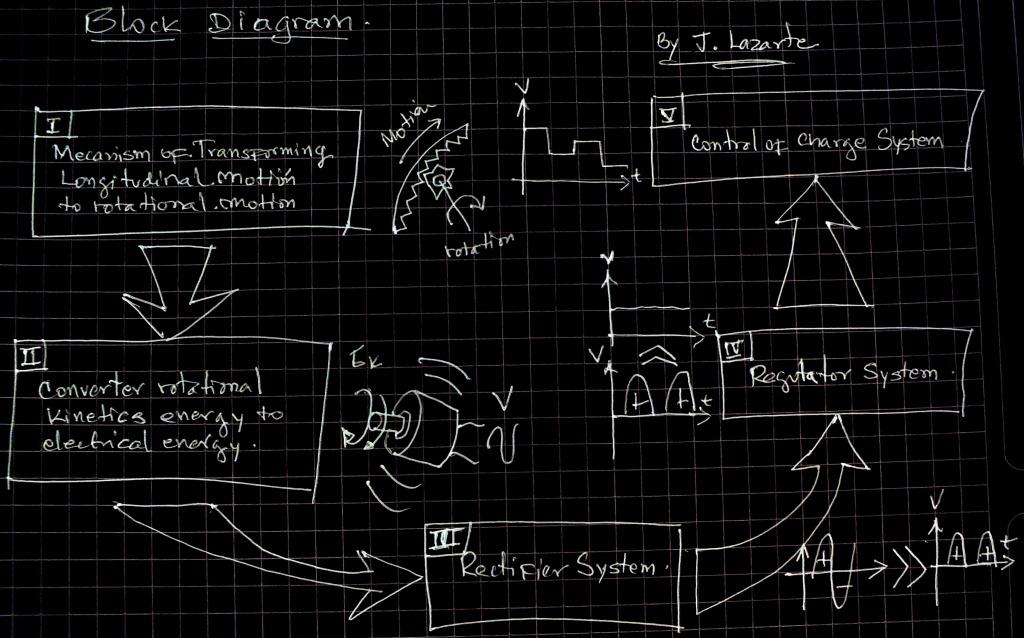 Block Diagram.
By J. Lazarte
I
Mecanism of Transforming
Longitudinal motion
to rotational motion
Motion
rotation
V
t
V
Control of Charge System
II
Converter rotational
kinetics energy to
electrical energy.
Ek
V
V
t
V
+ + t
IV
Regulator System.
III
Rectifier System.
+ -
V
+ + t